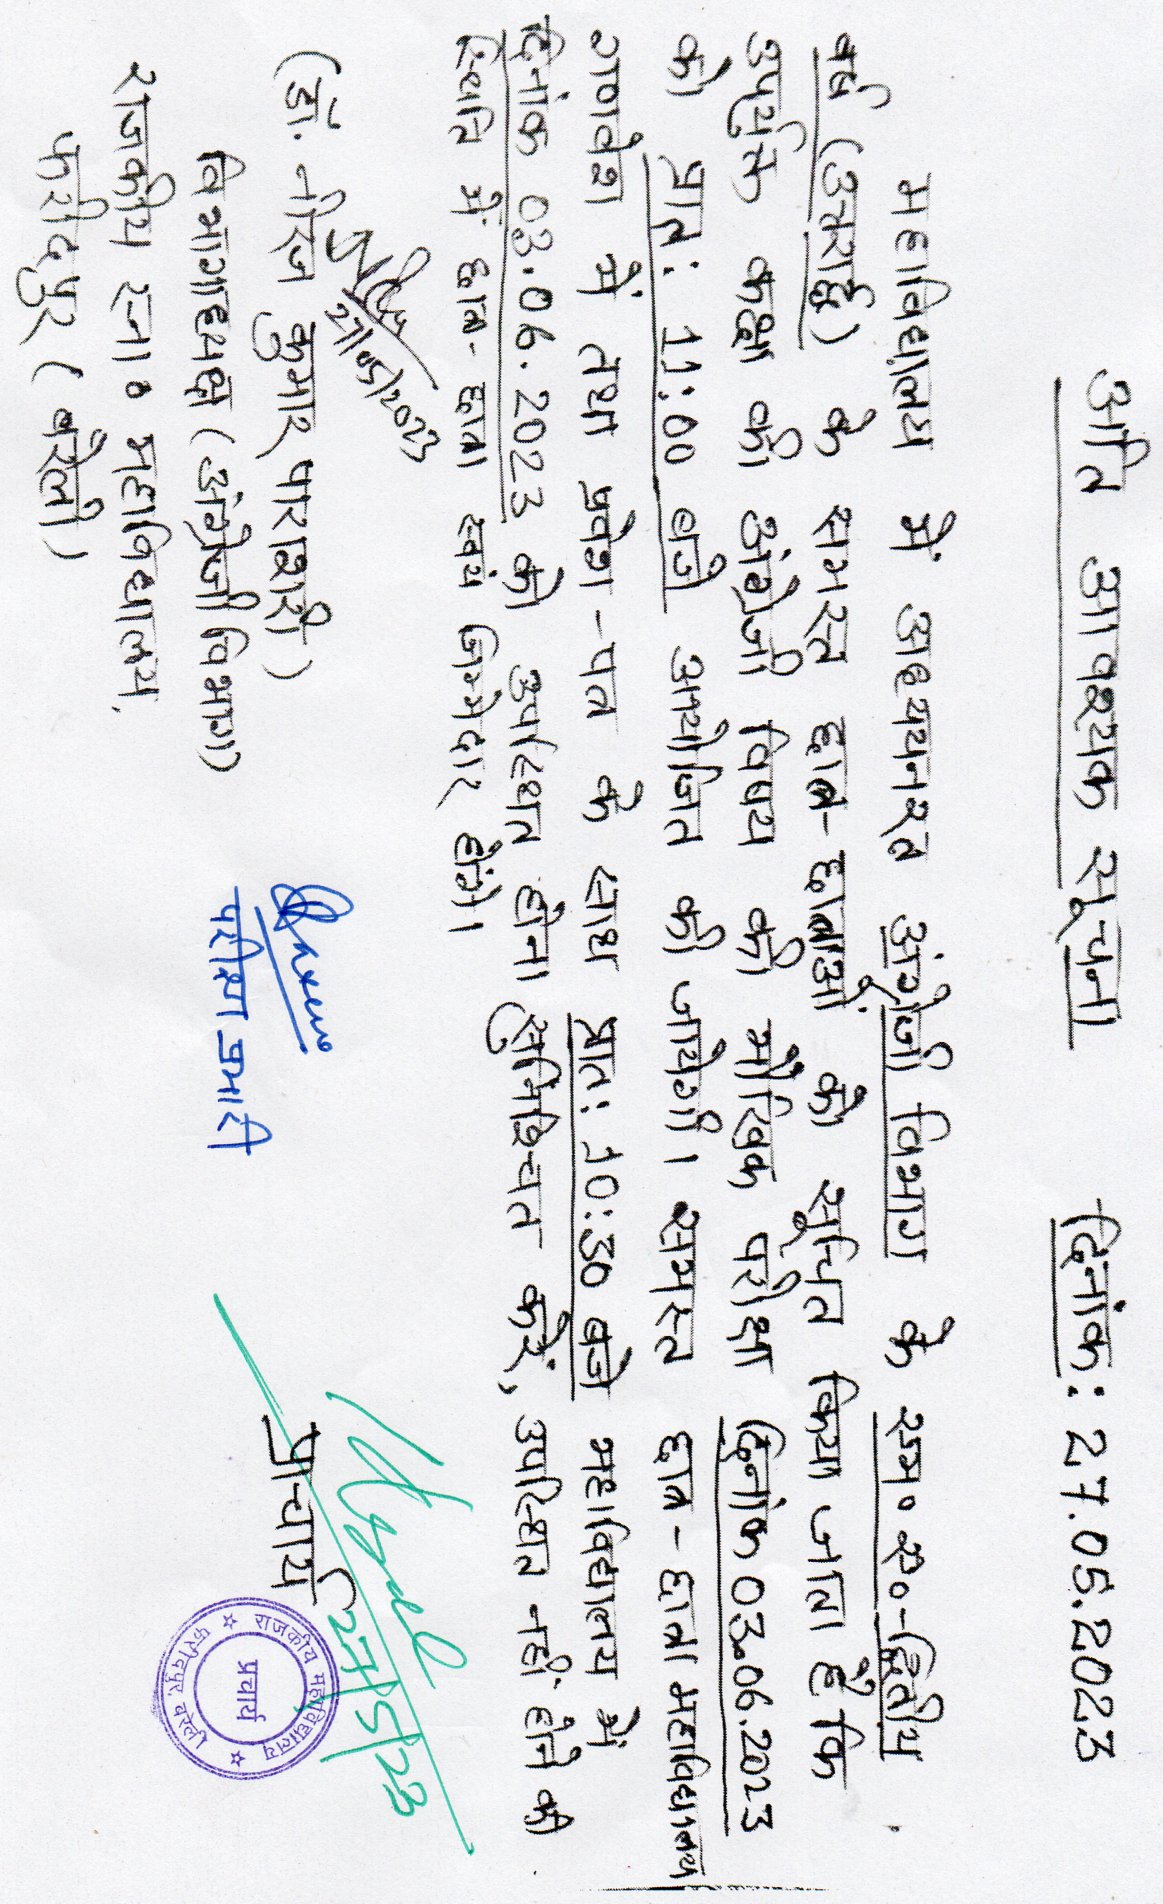 अति आवश्यक सूचना दिनांक: 27.05.2023
महाविद्यालय में अध्ययनरत अंग्रेजी विभाग के एम० ए०-द्वितीय
वर्ष (उत्तरार्द्ध) के समस्त छात्र-छात्राओं को सूचित किया जाता है कि
उपर्युक्त कक्षा की अंग्रेजी विषय की मौखिक परीक्षा दिनांक 03.06.2023
को प्रात: 11:00 बजे आयोजित की जायेगी। समस्त छात्र-छात्रा महाविद्यालय
गणवेश में तथा प्रवेश-पत्र के साथ प्रात: 10:30 बजे महाविद्यालय में
दिनांक 03.06.2023 को उपस्थित होना सुनिश्चित करें, उपस्थित नहीं होने की
स्थिति में छात्र-छात्रा स्वयं जिम्मेदार होंगे।
27/05/2023
(डॉ. नीरज कुमार पाराशरी)
विभागाध्यक्ष (अंग्रेजी विभाग)
राजकीय स्ना० महाविद्यालय,
फरीदपुर (बरेली)
परीक्षा प्रभारी
प्राचार्य
27/5/23
राजकीय महाविद्यालय
फरीदपुर, बरेली
प्रचार्य